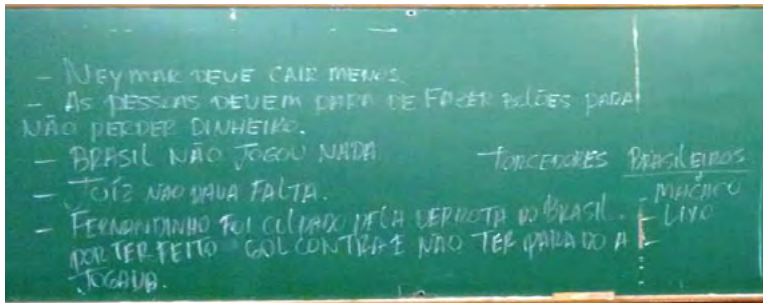 - NEYMAR DEVE CAIR MENOS.
- AS PESSOAS DEVEM PARA DE FAZER BOLÕES PARA
NÃO PERDER DINHEIRO.
- BRASIL NÃO JOGOU NADA
- JUÍZ NÃO DAVA FALTA.
- FERNANDINHO FOI CULPADO PELA DERROTA DO BRASIL.
POR TER FEITO GOL CONTRA E NÃO TER PARADO A
JOGADA.
TORCEDORES BRASILEIROS
- MACACO
- LIXO
-